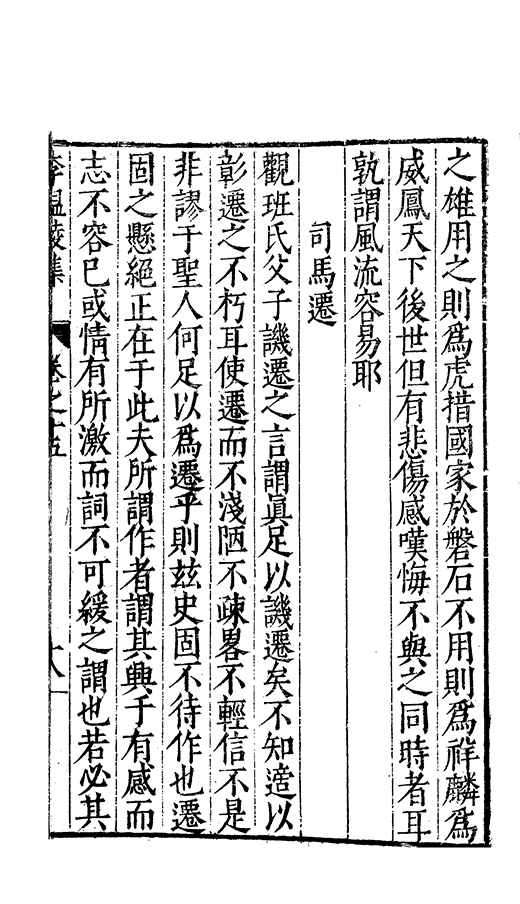 之雄用之則爲虎措國家於磐石不用則爲祥麟爲
威鳳天下後世但有悲傷感嘆悔不與之同時者耳
孰謂風流容易耶
司馬遷
觀班氏父子譏遷之言謂眞足以譏遷矣不知適以
彰遷之不朽耳使遷而不淺陋不疎畧不輕信不是
非謬于聖人何足以爲遷乎則玆史固不待作也遷
固之懸絕正在于此夫所謂作者謂其興于有感而
志不容已或情有所激而詞不可緩之謂也若必其
李温陵集 卷之十五 十八